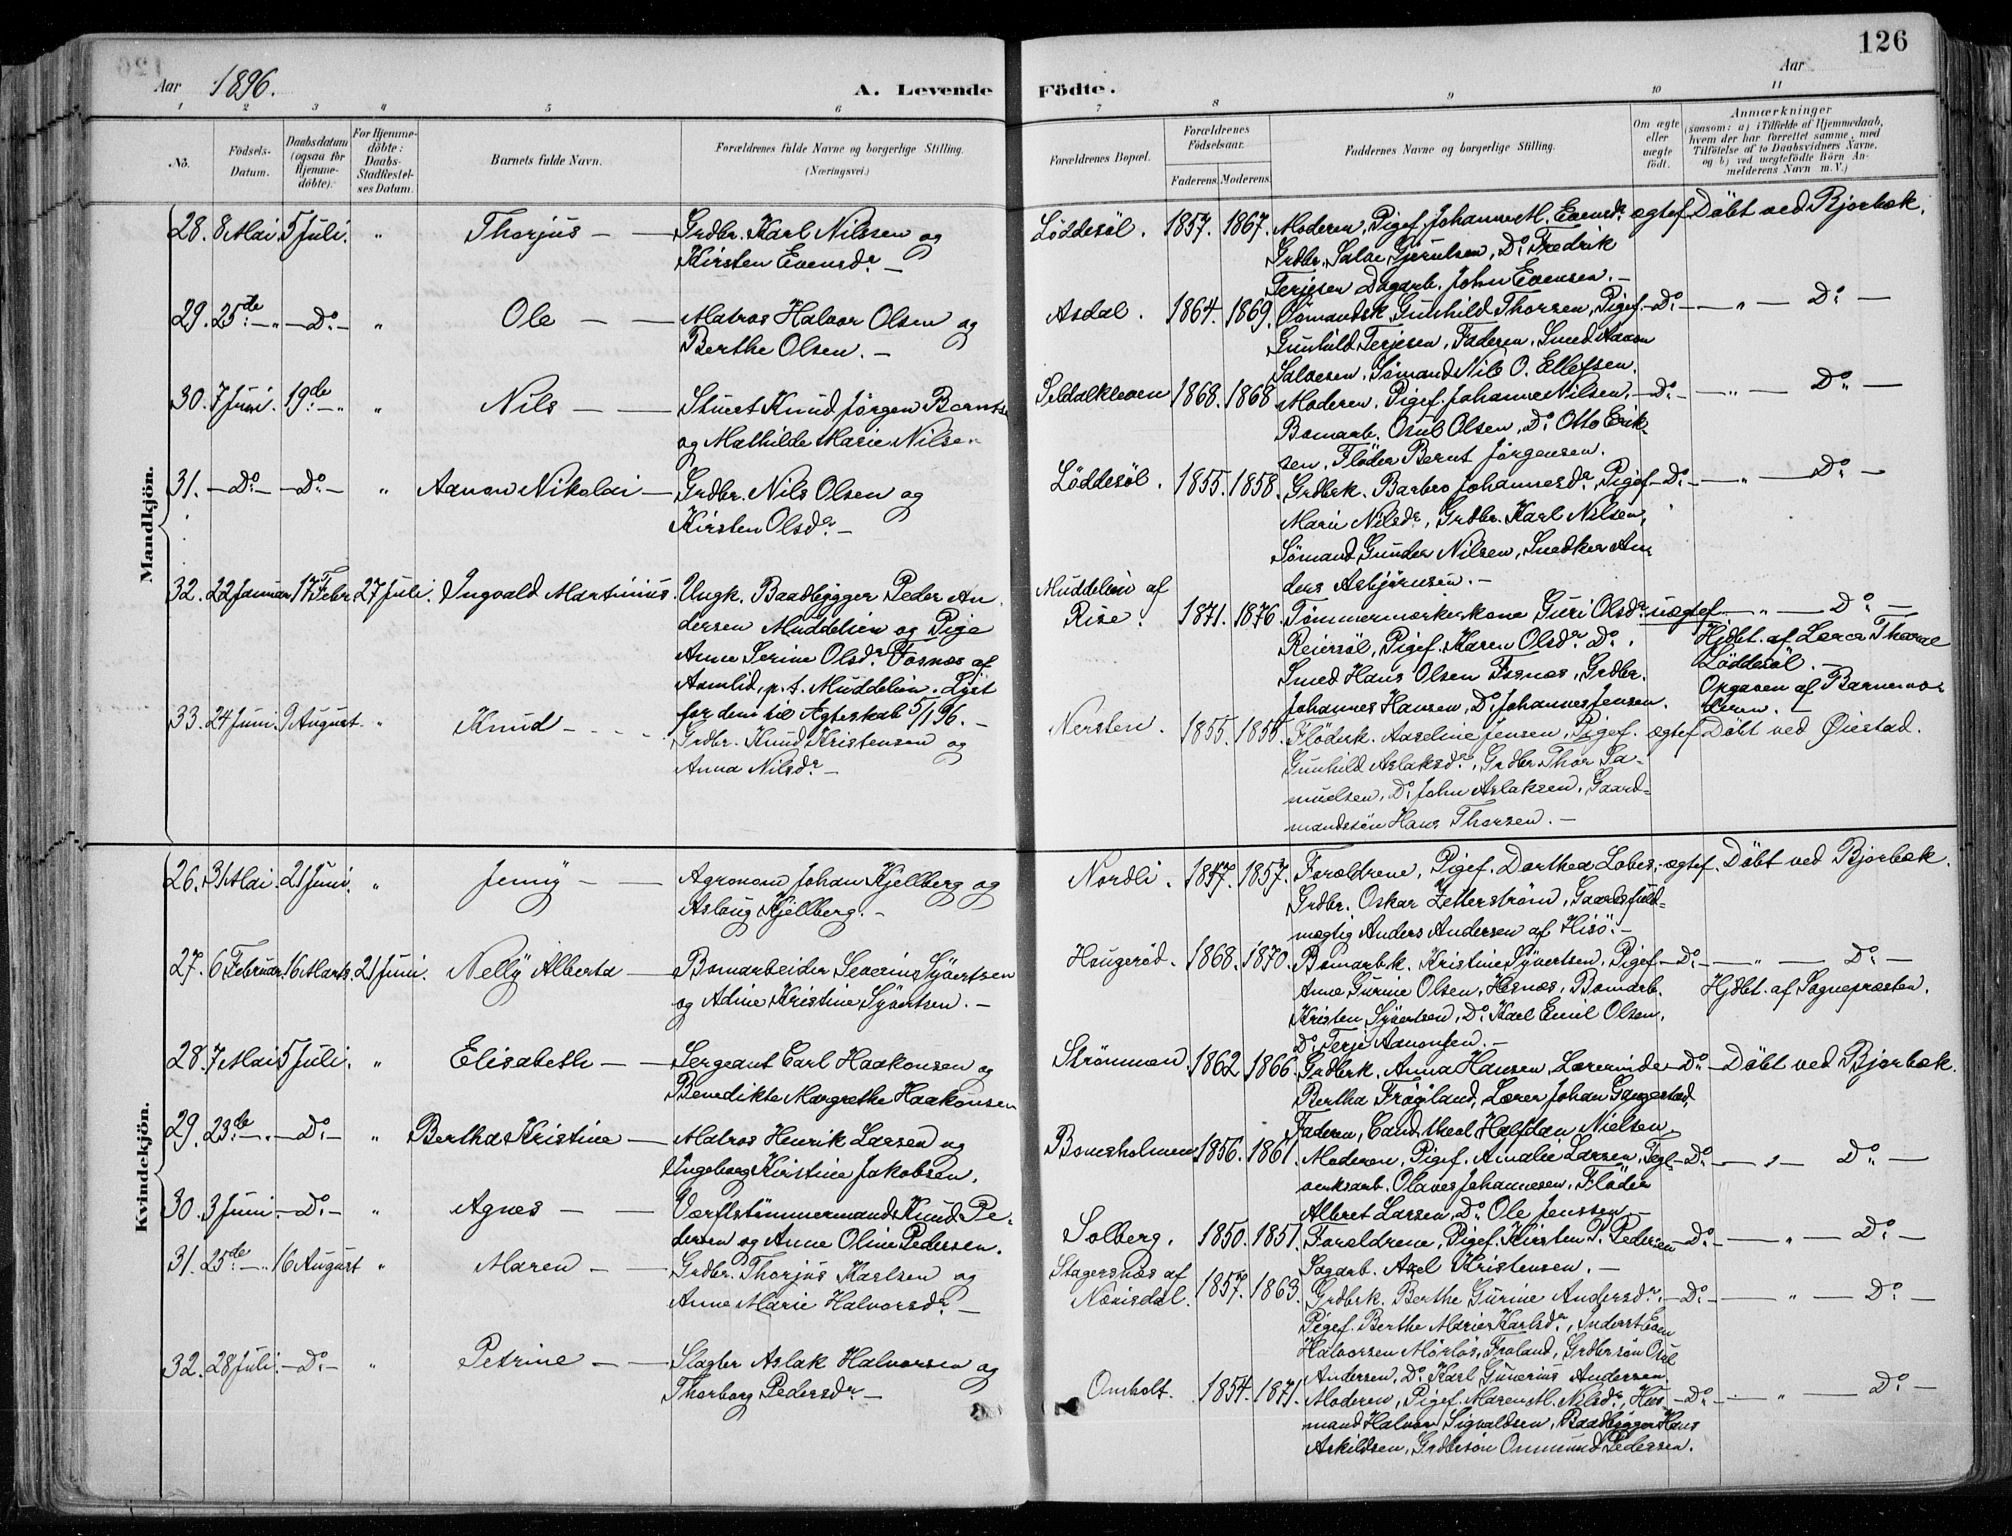 126
Aar 1896.
A. Levende Födte.
Aar
1 2 3 4 5 6 7 8 9 10 11
No.
Födsels-Datum.
Daabsdatum (ogsaa for Hjemme-döbte).
For Hjemme-döbte: Daabs-Stadfæstel-ses Datum.
Barnets fulde Navn.
Forældrenes fulde Navne og borgerlige Stilling. (Næringsvei.)
Forældrenes Bopæl.
Forældrenes Födselsaar.
Faderens. Moderens.
Faddernes Navne og borgerlige Stilling.
Om ægte eller uægte födt.
Anmærkninger (saasom: a) i Tilfælde af Hjemmedaab, hvem der har forrettet samme, med Tilföielse af to Daabsvidners Navne, og b) ved uegtefödte Börn Anmelderens Navn m. V.)
Mandkjön.
28. 8 Mai 5 Juli. " Thorjus — — Grdbr. Karl Nilssen og
Kirsten Evensdr. —
Löddesöl. 1857. 1867. Moderen, Pigef. Johanne M. Evensdr. ægtef. Döbt ved Bjorbæk.
Grdbr. Salve Gjerulsen, Do Fredrik
Terjesen Dagarb. John Evensen. —
29. 25de — " — Do — " Ole — — Matros Halvor Olsen og
Berthe Olsen. —
Asdal. 1864. 1869. Sömandsk. Gunhild Thorsen, Pigef. — Do — " — Do —
Gunhild Terjesen, Faderen, Smed Aanon
Salvesen, Sömand Nils O. Ellefsen.
30. 7 Juni. 19de — " " Nils — — Stuert Knud Jörgen Berntsen
og Mathilde Marie Nilsen
Seldalkleven 1868. 1868 Moderen, Pigef. Johanne Nilsen, — Do — " — Do —
Bomarb. Osul Olsen, Do Otto Erik-
sen, Flöder Bernt Jörgensen.
31. — Do — — Do — " Aanon Nikolai — Grdbr. Nils Olsen og
Kirsten Olsdr. —
Löddesöl. 1855. 1858. Grdbrk. Barbro Johannesdr, Pigef. — Do — " — Do —
Marie Nilsdr, Grdbr. Karl Nilsen,
Sömand Gunder Nilsen, Snedker An-
ders Asbjörnsen. —
32. 22 Januar 17 Febr 27 Juli. Ingvald Martinius. Ungk. Baadbygger Peder An-
dersen Muddelien og Pige
Anne Serine Olsdr. Fosnæs af
Aamlid, p. t. Muddelien. Lyst
for dem til Ægteskab 5/1 96. —
Muddelien af
Rise. 1871. 1876. Tömmermærkerkone Guri Olsdr. uægtef. — " — Do —
Reiersöl, Pigef. Karen Olsdr. Do.
Smed Hans Olsen Fosnæs, Grdbr.
Johannes Hansen, Do Johannes Jensen.
Hjdbt. af Lærer Thorne
Löddesöl. —
Opgaven af Barnemo-
deren. —
33. 24 Juni. 9 August. " Knud — — Grdbr. Knud Kristensen og
Anna Nilsdr —
Nersten. 1855. 1855. Flöderk. Aaseline Jensen, Pigef. ægtef. Döbt ved Öiestad.
Gunhild Aslaksdr, Grdbr Thor Sa-
muelsen, Do John Aslaksen, Gaard-
mandssön Hans Thorsen. —
Kvindekjön.
26. 31 Mai. 21 Juni. " Jenny — — Agronom Johan Kjellberg og
Aslaug Kjellberg. —
Nordli. 1847. 1857. Forældrene, Pigef. Dorthea Lobes, ægtef. Döbt ved Bjorbæk.
Grdbr. Oskar Zetterström, Gaardsfuld-
mægtig Anders Andersen af Hisö. —
27. 6 Februar. 16 Marts. 21 Juni. Nelly Alberta — Bomarbeider Severin Syvertsen
og Adine Kristine Syvertsen. —
Haugeröd. 1868. 1870. Bomarbk. Kristine Syvertsen, Pigef. — Do — " — Do —
Anne Gurine Olsen, Hesnæs, Bomarb.
Kristen Syvertsen, Do Karl Emil Olsen,
Do Terje Aanonsen. —
Hjdbt. af Sognepræsten.
28. 7 Mai 5 Juli. " Elisabeth — — Sergeant Carl Haakonsen og
Benedikte Margrethe Haakonsen
Strömmen. 1862 1866. Grdbrk. Anna Hansen, Lærerinde Do — Döbt ved Bjorbæk.
Bertha Frögland, Lærer Johan Gangestad,
Faderen, Cand. theol Halfdan Nielsen.
29. 23de — " — Do — " Bertha Kristine — Matros Henrik Larsen og
Ingeborg Kirstine Jakobsen.
Bomsholmen 1856. 1861. Moderen, Pigef. Amalie Larsen, Tegl- — Do — " — Do —
verksarb. Olaves Johannesen, Flöder
Albret Larsen, Do. Ole Jenssen. —
30. 3 Juni — Do — " Agnes — — Værftstömmermand Knud Pe-
dersen og Anne Oline Pedersen.
Solberg. 1850. 1851. Forældrene, Pigef. Kirsten P. Pedersen — Do — " — Do —
Sagarb. Axel Kristensen. —
31. 25de — " 16 August " Maren — — Grdbr. Thorjus Karlsen og
Anne Marie Halvorsdr —
Stagersnæs af
Næsisdal. 1857. 1863. Grdbrk. Berthe Gurine Andersdr. — Do — " — Do —
Pigef. Berthe Marie Karlsdr, Inderst Even
Halvorsen Mörlös, Froland, Grdbrsön Osul
Andersen, Do Karl Gunerius Andersen.
32. 28 Juli. — Do — " Petrine — — Slagter Aslak Halvorsen og
Thorborg Pedersdr —
Omholt. 1854. 1871. Moderen, Pigef. Maren M. Nilsdr, Hus- — Do — " — Do —
mand Halvor Sigvaldsen, Baadbygger Hans
Askildsen, Grdbrsön Ommund Pedersen.